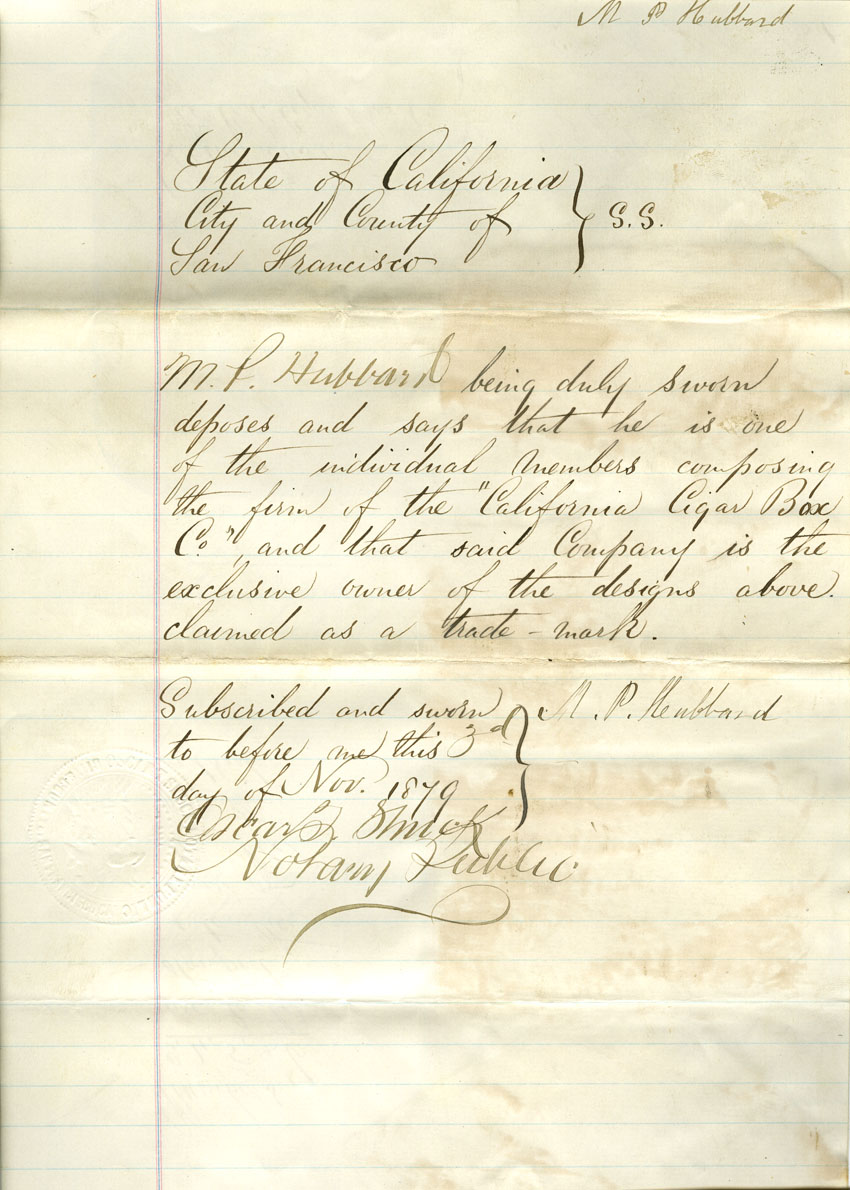 M P Hubbard
State of California
City and County of } S.S.
San Francisco
M. P. Hubbard being duly sworn
deposes and says that he is one
of the individual members composing
the firm of the "California Cigar Box
Co.", and that said Company is the
exclusive owner of the designs above
claimed as a trade-mark.
Subscribed and sworn } M. P. Hubbard
to before me this 3d
day of Nov. 1879
Oscar T. Shuck
Notary Public